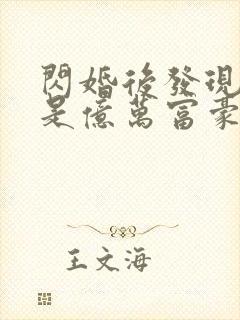 閃婚後發現
是億萬富豪
王文海